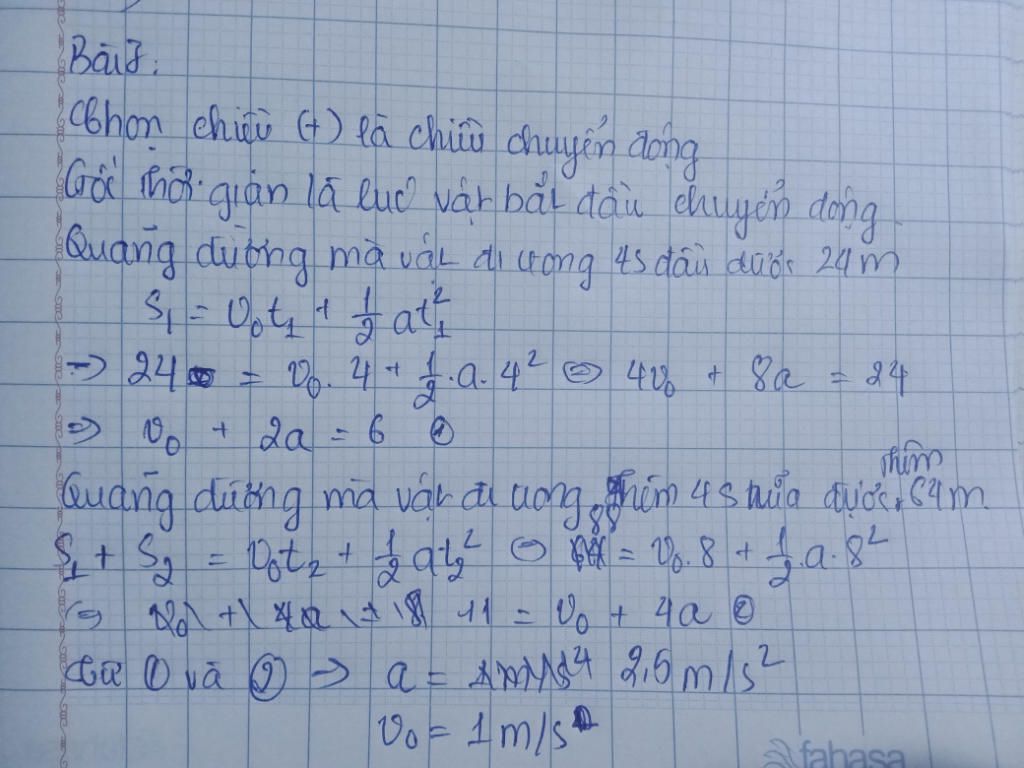 Bài 7:
Chọn chiều (+) là chiều chuyển động
Gốc thời gian là lúc vật bắt đầu chuyển động
Quãng đường mà vật đi trong 4s đầu được 24m
S₁ = v₀t₁ + 1/2 at₁²
=> 24 = v₀. 4 + 1/2 .a. 4² <=> 4v₀ + 8a = 24
=> v₀ + 2a = 6 ①
Quãng đường mà vật đi trong thêm 4s nữa được thêm 64m
S₁ + S₂ = v₀t₂ + 1/2 at₂² <=> 88 = v₀.8 + 1/2 .a.8²
<=> 11 = v₀ + 4a ②
Từ ① và ② => a = 2,5 m/s²
v₀ = 1m/s
fahasa